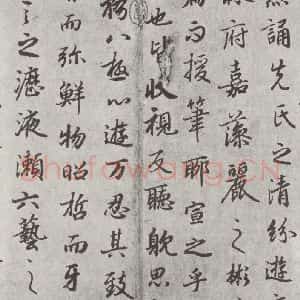 誦先氏之清紛遊
府嘉藻麗之彬
而援筆聊宣之乎
也皆收視反聽耽思
八極心遊万忍其致
而弥鮮物昭晢而互
之瀝液漱六藝之
shufawang.CN